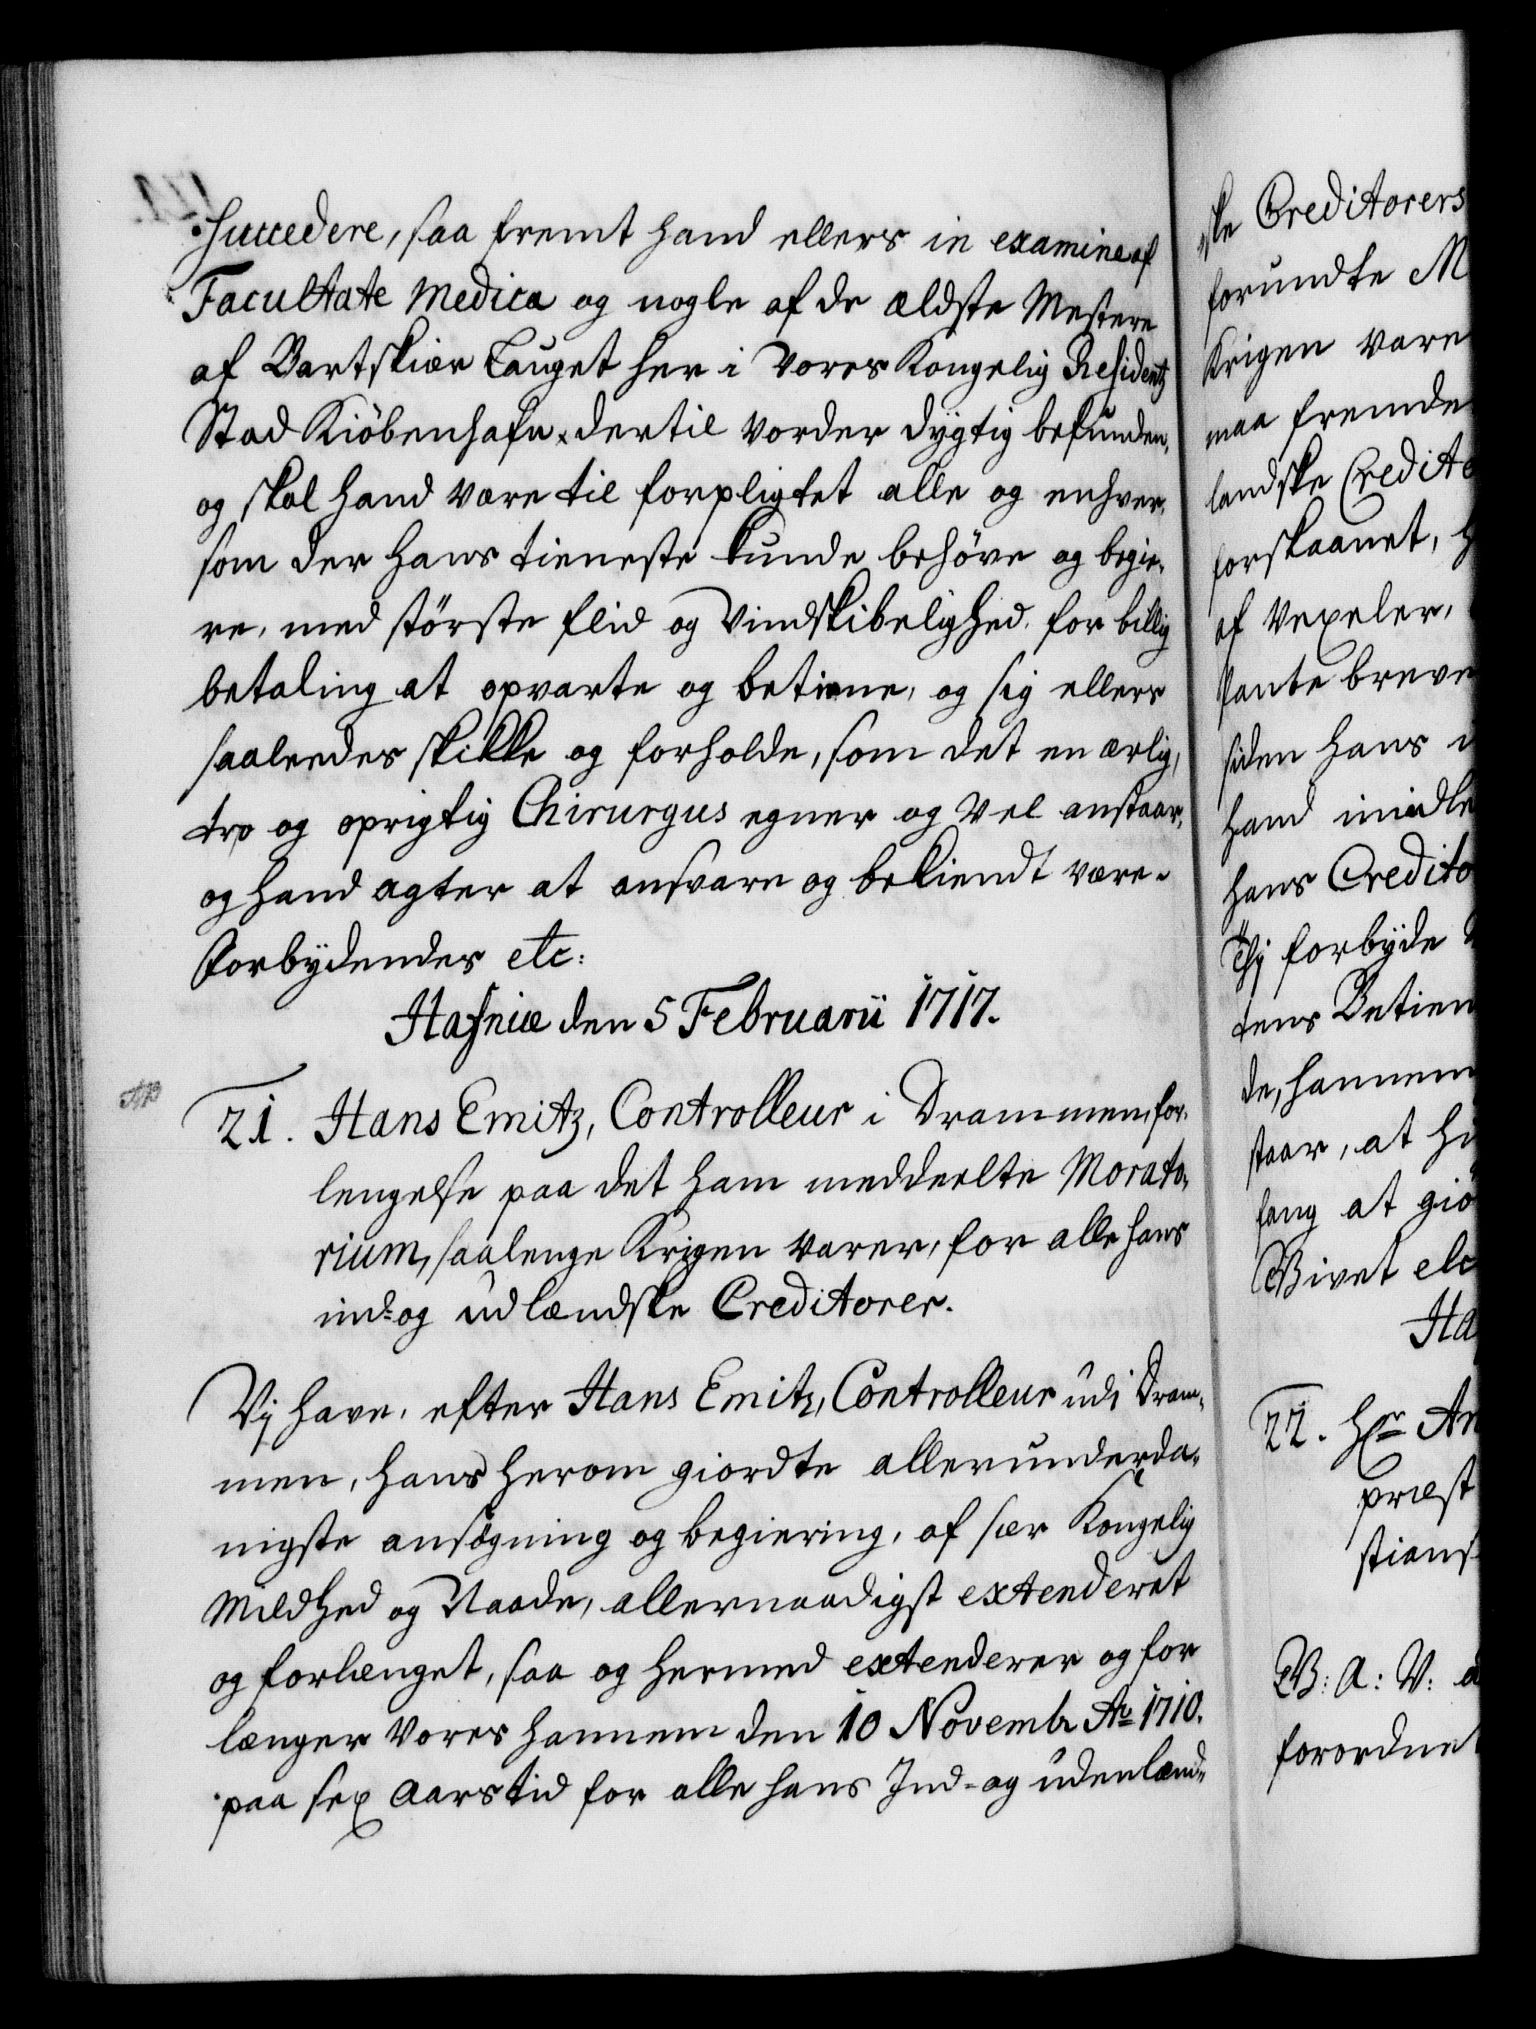 succedere, saa fremt hand ellers in examine af
Facultate Medica og nogle af de ældste Mestere
af Bartskiær Lauget her i Vores Kongelig Residentz
Stad Kiöbenhafn dertil vorder dygtig befunden,
og skal hand være til forpligtet alle og enhver,
som der hans tieneste kunde behöve og begie-
re, med störste flid og Vindskibelighed, for billig
betaling at opvarte og betiene, og sig ellers
saaledes skikke og forholde, som det en ærlig,
tro og oprigtig Chirurgus egner og vel anstaar,
og hand agter at ansvare og bekiendt være.
Forbydendes etc:
Hafniæ den 5 Februarii 1717.
21. Hans Emitz, Controlleur i Drammen, for-
lengelse paa det ham meddeelte Morato-
rium, saalenge Krigen varer, for alle hans
ind- og udlændske Creditorer.
Vij have, efter Hans Emitz, Controlleur udi Dram-
men, hans herom giordte allerunderda-
nigste ansøgning og begiering, af sær Kongelig
Mildhed og Naade, allernaadigst extenderet
og forlænget, saa og hermed extenderer og for
længer Vores hannem den 10 Novembr Ao 1710.
paa sex Aars tid for alle hans Ind- og udenlænd-
ske Creditorers
forundte M
Krigen vare
maa fremde
landske Credito
forskaanet, h
af Vexeler,
Pante breve
siden hans i
hand imidle
hans Credito
Thj forbyde
tens Betien
de, hannem
staar, at hi
fang at giö
Givet etc
Ha
22. Hr An
præst
stians
G: A: V: a
forordnet